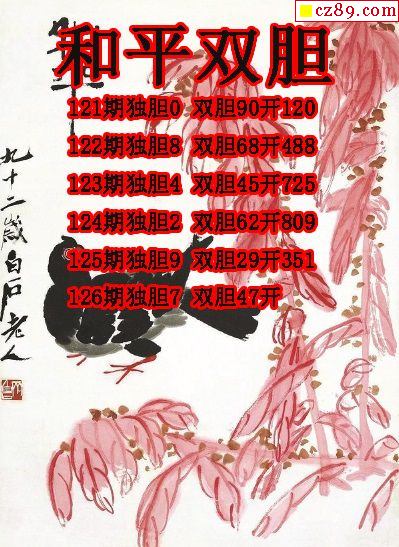 cz89.com
和平双胆
121期独胆0 双胆90开120
122期独胆8 双胆68开488
123期独胆4 双胆45开725
124期独胆2 双胆62开809
125期独胆9 双胆29开351
126期独胆7 双胆47开
和平
九十二岁白石老人